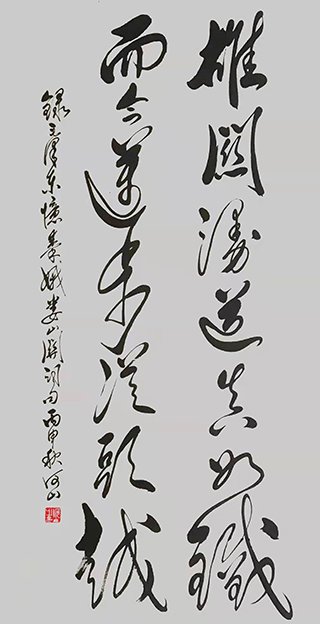 雄關漫道真如鐵
而今邁步從頭越
錄毛澤东憶秦娥婁山關詞句丙申秋河山